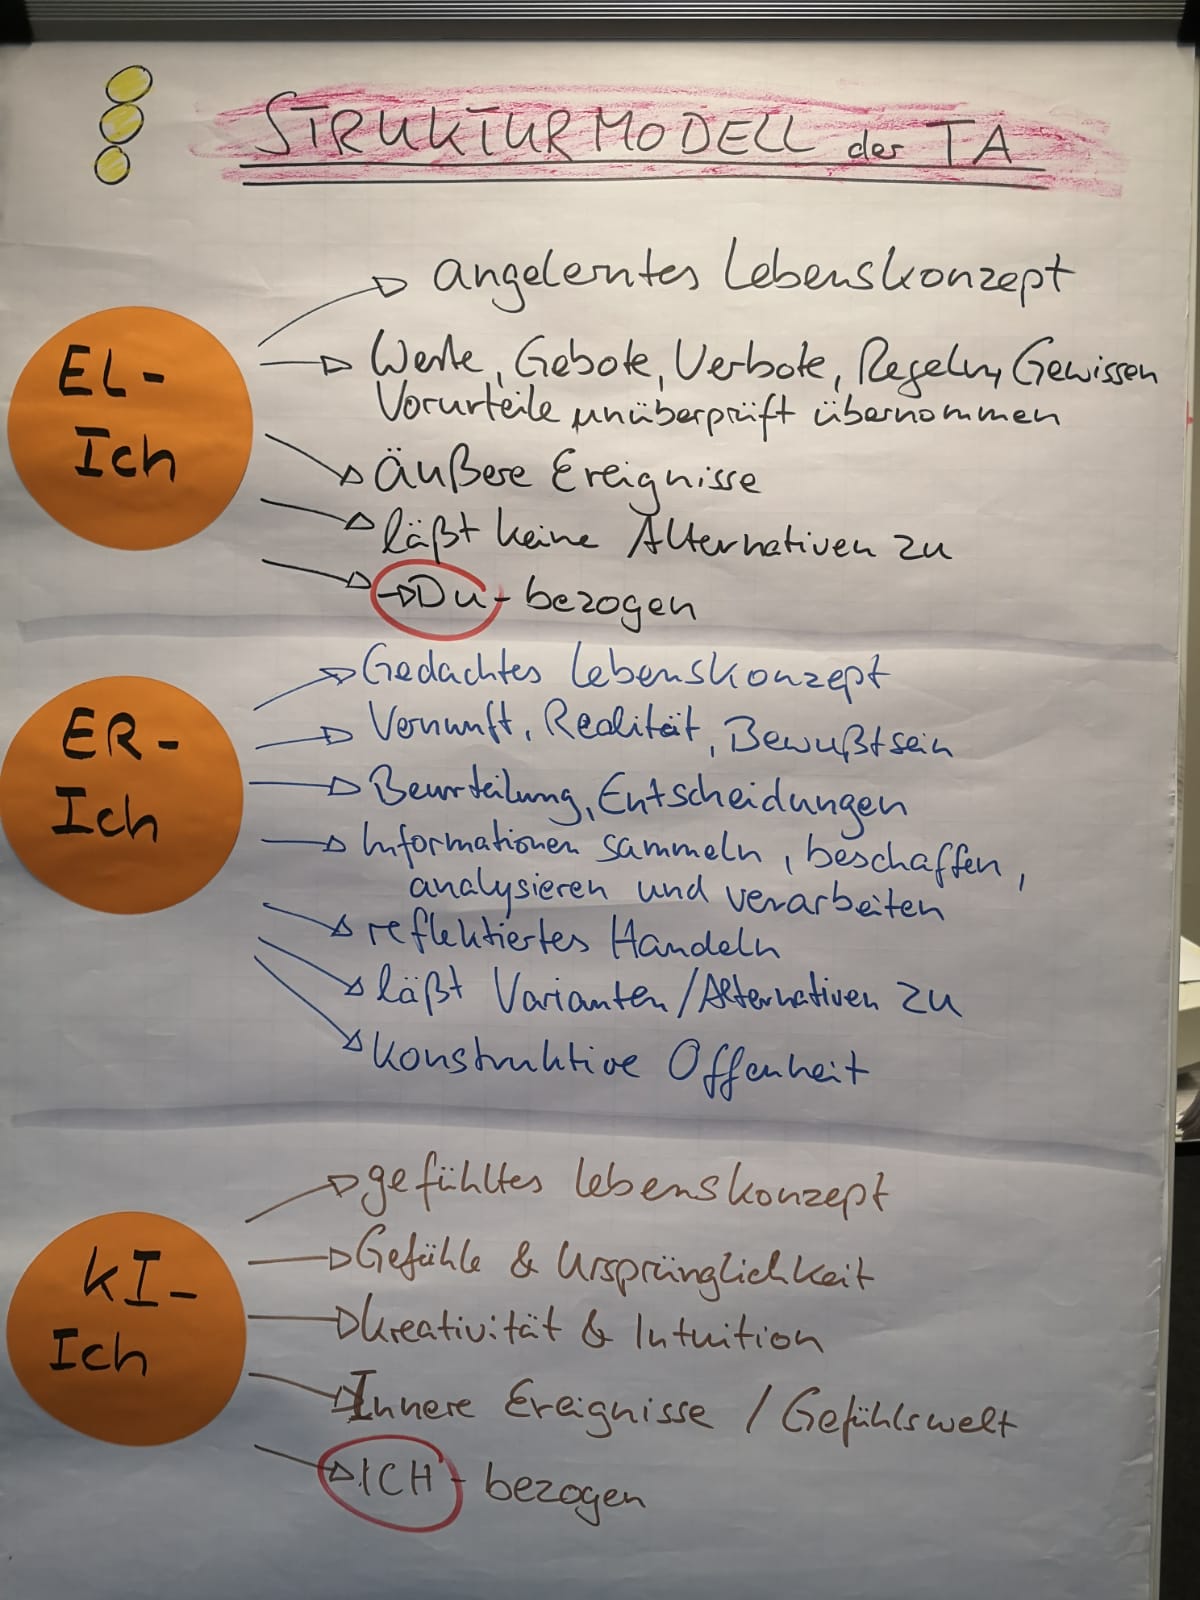 STRUKTURMODELL der TA
EL-
Ich
angelerntes Lebenskonzept
Werte, Gebote, Verbote, Regeln, Gewissen
Vorurteile unüberprüft übernommen
äußere Ereignisse
läßt keine Alternativen zu
Du-bezogen
ER-
Ich
Gedachtes Lebenskonzept
Vernunft, Realität, Bewußtsein
Beurteilung, Entscheidungen
Informationen sammeln, beschaffen,
analysieren und verarbeiten
reflektiertes Handeln
läßt Varianten/Alternativen zu
konstruktive Offenheit
KI-
Ich
gefühltes Lebenskonzept
Gefühle & Ursprünglichkeit
Kreativität & Intuition
Innere Ereignisse / Gefühlswelt
ICH-bezogen